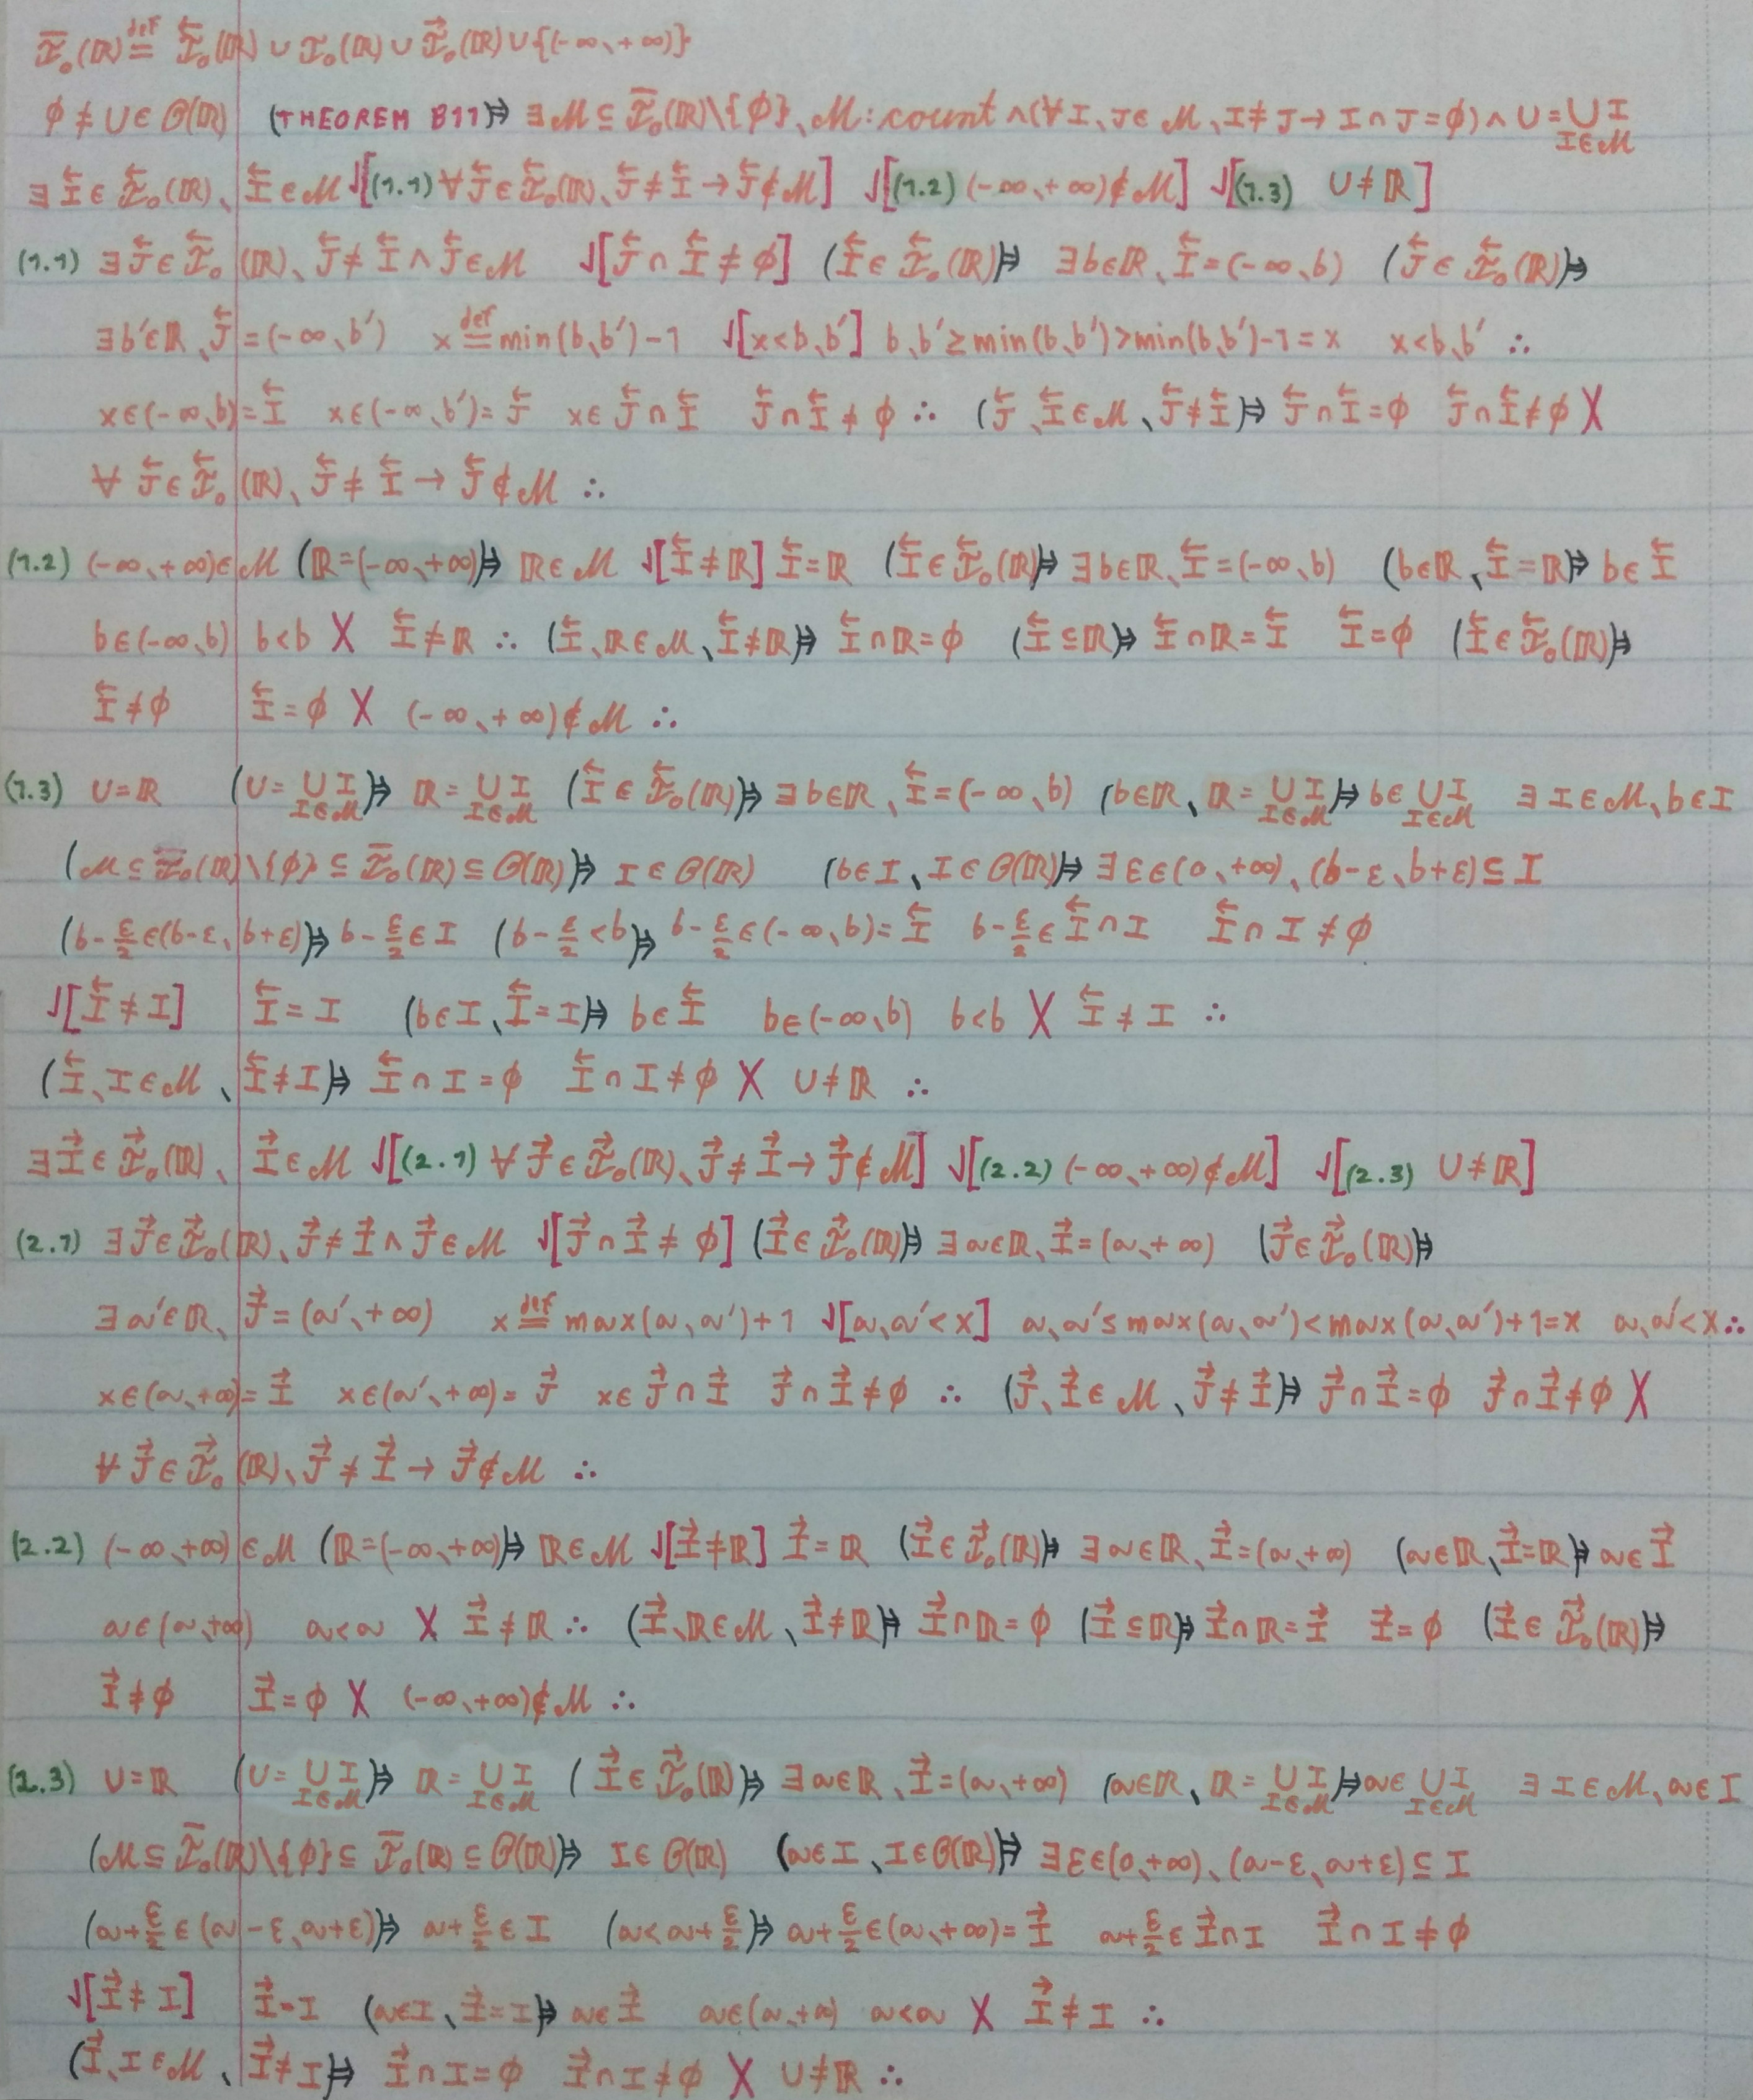 ℐ̅₀(ℝ) ≝ ℐ⃖₀(ℝ) ∪ ℐ₀(ℝ) ∪ ℐ⃗₀(ℝ) ∪ {(-∞、+∞)}
ϕ ≠ U ∈ 𝒪(ℝ) (THEOREM B11)⇒ ∃ℳ ⊆ ℐ̅₀(ℝ)\{ϕ}、ℳ:count ∧ (∀I、J∈ℳ、I≠J → I∩J=ϕ) ∧ U = ⋃_{I∈ℳ} I
∃I⃖ ∈ ℐ⃖₀(ℝ)、I⃖∈ℳ √[(1.1) ∀J⃖∈ℐ⃖₀(ℝ)、J⃖≠I⃖ → J⃖∉ℳ] √[(1.2) (-∞、+∞)∉ℳ] √[(1.3) U≠ℝ]
(1.1) ∃J⃖∈ℐ⃖₀(ℝ)、J⃖≠I⃖ ∧ J⃖∈ℳ √[J⃖∩I⃖≠ϕ] (I⃖∈ℐ⃖₀(ℝ))⇒ ∃b∈ℝ、I⃖=(-∞、b) (J⃖∈ℐ⃖₀(ℝ))⇒
∃b'∈ℝ、J⃖=(-∞、b') x ≝ min(b、b')-1 √[x<b、b'] b、b'≥min(b、b')>min(b、b')-1=x x<b、b' ∴
x∈(-∞、b)=I⃖ x∈(-∞、b')=J⃖ x∈J⃖∩I⃖ J⃖∩I⃖≠ϕ ∴ (J⃖、I⃖∈ℳ、J⃖≠I⃖)⇒ J⃖∩I⃖=ϕ J⃖∩I⃖≠ϕ X
∀J⃖∈ℐ⃖₀(ℝ)、J⃖≠I⃖ → J⃖∉ℳ ∴
(1.2) (-∞、+∞)∈ℳ (ℝ=(-∞、+∞))⇒ ℝ∈ℳ √[I⃖≠ℝ] I⃖=ℝ (I⃖∈ℐ⃖₀(ℝ))⇒ ∃b∈ℝ、I⃖=(-∞、b) (b∈ℝ、I⃖=ℝ)⇒ b∈I⃖
b∈(-∞、b) b<b X I⃖≠ℝ ∴ (I⃖、ℝ∈ℳ、I⃖≠ℝ)⇒ I⃖∩ℝ=ϕ (I⃖⊆ℝ)⇒ I⃖∩ℝ=I⃖ I⃖=ϕ (I⃖∈ℐ⃖₀(ℝ))⇒
I⃖≠ϕ I⃖=ϕ X (-∞、+∞)∉ℳ ∴
(1.3) U=ℝ (U=⋃_{I∈ℳ} I)⇒ ℝ=⋃_{I∈ℳ} I (I⃖∈ℐ⃖₀(ℝ))⇒ ∃b∈ℝ、I⃖=(-∞、b) (b∈ℝ、ℝ=⋃_{I∈ℳ} I)⇒ b∈⋃_{I∈ℳ} I ∃I∈ℳ、b∈I
(ℳ⊆ℐ̅₀(ℝ)\{ϕ}⊆ℐ̅₀(ℝ)⊆𝒪(ℝ))⇒ I∈𝒪(ℝ) (b∈I、I∈𝒪(ℝ))⇒ ∃ε∈(0、+∞)、(b-ε、b+ε)⊆I
(b-ε/2∈(b-ε、b+ε))⇒ b-ε/2∈I (b-ε/2<b)⇒ b-ε/2∈(-∞、b)=I⃖ b-ε/2∈I⃖∩I I⃖∩I≠ϕ
√[I⃖≠I] I⃖=I (b∈I、I⃖=I)⇒ b∈I⃖ b∈(-∞、b) b<b X I⃖≠I ∴
(I⃖、I∈ℳ、I⃖≠I)⇒ I⃖∩I=ϕ I⃖∩I≠ϕ X U≠ℝ ∴
∃I⃗∈ℐ⃗₀(ℝ)、I⃗∈ℳ √[(2.1) ∀J⃗∈ℐ⃗₀(ℝ)、J⃗≠I⃗ → J⃗∉ℳ] √[(2.2) (-∞、+∞)∉ℳ] √[(2.3) U≠ℝ]
(2.1) ∃J⃗∈ℐ⃗₀(ℝ)、J⃗≠I⃗ ∧ J⃗∈ℳ √[J⃗∩I⃗≠ϕ] (I⃗∈ℐ⃗₀(ℝ))⇒ ∃a∈ℝ、I⃗=(a、+∞) (J⃗∈ℐ⃗₀(ℝ))⇒
∃a'∈ℝ、J⃗=(a'、+∞) x ≝ max(a、a')+1 √[a、a'<x] a、a'≤max(a、a')<max(a、a')+1=x a、a'<x ∴
x∈(a、+∞)=I⃗ x∈(a'、+∞)=J⃗ x∈J⃗∩I⃗ J⃗∩I⃗≠ϕ ∴ (J⃗、I⃗∈ℳ、J⃗≠I⃗)⇒ J⃗∩I⃗=ϕ J⃗∩I⃗≠ϕ X
∀J⃗∈ℐ⃗₀(ℝ)、J⃗≠I⃗ → J⃗∉ℳ ∴
(2.2) (-∞、+∞)∈ℳ (ℝ=(-∞、+∞))⇒ ℝ∈ℳ √[I⃗≠ℝ] I⃗=ℝ (I⃗∈ℐ⃗₀(ℝ))⇒ ∃a∈ℝ、I⃗=(a、+∞) (a∈ℝ、I⃗=ℝ)⇒ a∈I⃗
a∈(a、+∞) a<a X I⃗≠ℝ ∴ (I⃗、ℝ∈ℳ、I⃗≠ℝ)⇒ I⃗∩ℝ=ϕ (I⃗⊆ℝ)⇒ I⃗∩ℝ=I⃗ I⃗=ϕ (I⃗∈ℐ⃗₀(ℝ))⇒
I⃗≠ϕ I⃗=ϕ X (-∞、+∞)∉ℳ ∴
(2.3) U=ℝ (U=⋃_{I∈ℳ} I)⇒ ℝ=⋃_{I∈ℳ} I (I⃗∈ℐ⃗₀(ℝ))⇒ ∃a∈ℝ、I⃗=(a、+∞) (a∈ℝ、ℝ=⋃_{I∈ℳ} I)⇒ a∈⋃_{I∈ℳ} I ∃I∈ℳ、a∈I
(ℳ⊆ℐ̅₀(ℝ)\{ϕ}⊆ℐ̅₀(ℝ)⊆𝒪(ℝ))⇒ I∈𝒪(ℝ) (a∈I、I∈𝒪(ℝ))⇒ ∃ε∈(0、+∞)、(a-ε、a+ε)⊆I
(a+ε/2∈(a-ε、a+ε))⇒ a+ε/2∈I (a<a+ε/2)⇒ a+ε/2∈(a、+∞)=I⃗ a+ε/2∈I⃗∩I I⃗∩I≠ϕ
√[I⃗≠I] I⃗=I (a∈I、I⃗=I)⇒ a∈I⃗ a∈(a、+∞) a<a X I⃗≠I ∴
(I⃗、I∈ℳ、I⃗≠I)⇒ I⃗∩I=ϕ I⃗∩I≠ϕ X U≠ℝ ∴